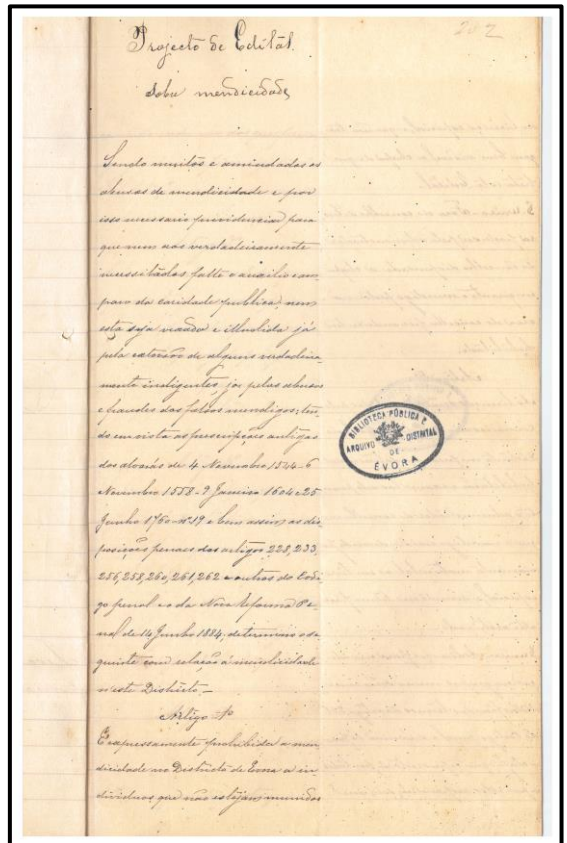 202
Projecto de Edital
sobre mendicidade
Sendo muitos e amiudados os
abusos de mendicidade e por
isso necessario providenciar para
que nem aos verdadeiramente
necessitados falte o auxilio e am-
paro da caridade publica, nem
esta seja vexada e illudida já
pela extorsão de alguns verdadeira-
mente indigentes, já pelos abusos
e fraudes dos falsos mendigos; ten-
do em vista as prescripções antigas
dos alvarás de 4 Novembro 1544-6
Novembro 1558-9 Janeiro 1604 e 25
Junho 1760-nº 19 e bem assim as dis-
posições penaes dos artigos 228, 233,
256, 258, 260, 261, 262 e outros do Codi-
go penal e da Nova Reforma Pe-
nal de 14 Junho 1884, determino o se-
guinte com relação á mendicidade
n'este Districto_
Artigo 1º
É expressamente prohibida a men-
dicidade no Districto de Evora a in-
dividuos que não estejam munidos
BIBLIOTECA PÚBLICA E
ARQUIVO DISTRITAL
DE
ÉVORA